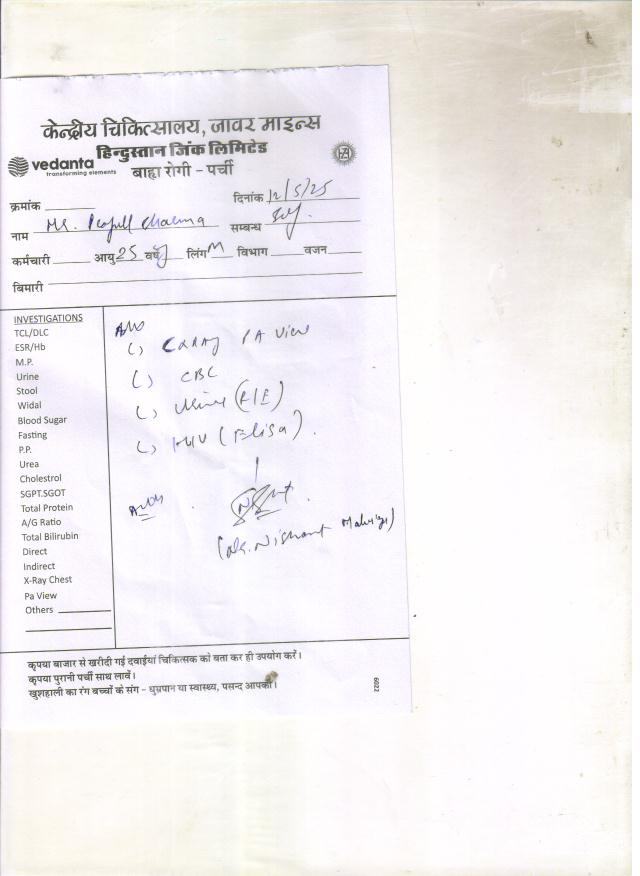 केन्द्रीय चिकित्सालय, जावर माइन्स
हिन्दुस्तान जिंक लिमिटेड
vedanta
transforming elements
बाह्य रोगी - पर्ची
क्रमांक
दिनांक 12/5/25
नाम Mr. Sharma सम्बन्ध Self.
कर्मचारी आयु 25 वर्ष लिंग M विभाग वजन
बिमारी
INVESTIGATIONS
TCL/DLC
ESR/Hb
M.P.
Urine
Stool
Widal
Blood Sugar
Fasting
P.P.
Urea
Cholestrol
SGPT.SGOT
Total Protein
A/G Ratio
Total Bilirubin
Direct
Indirect
X-Ray Chest
Pa View
Others
Adv
CXRAY PA View
CBC
Urine (R/E)
HIV (Elisa).
(Dr. Nishant)
कृपया बाजार से खरीदी गई दवाईयां चिकित्सक को बता कर ही उपयोग करें।
कृपया पुरानी पर्ची साथ लावें।
खुशहाली का रंग बच्चों के संग - धुम्रपान या स्वास्थ्य, पसन्द आपकी।
6022